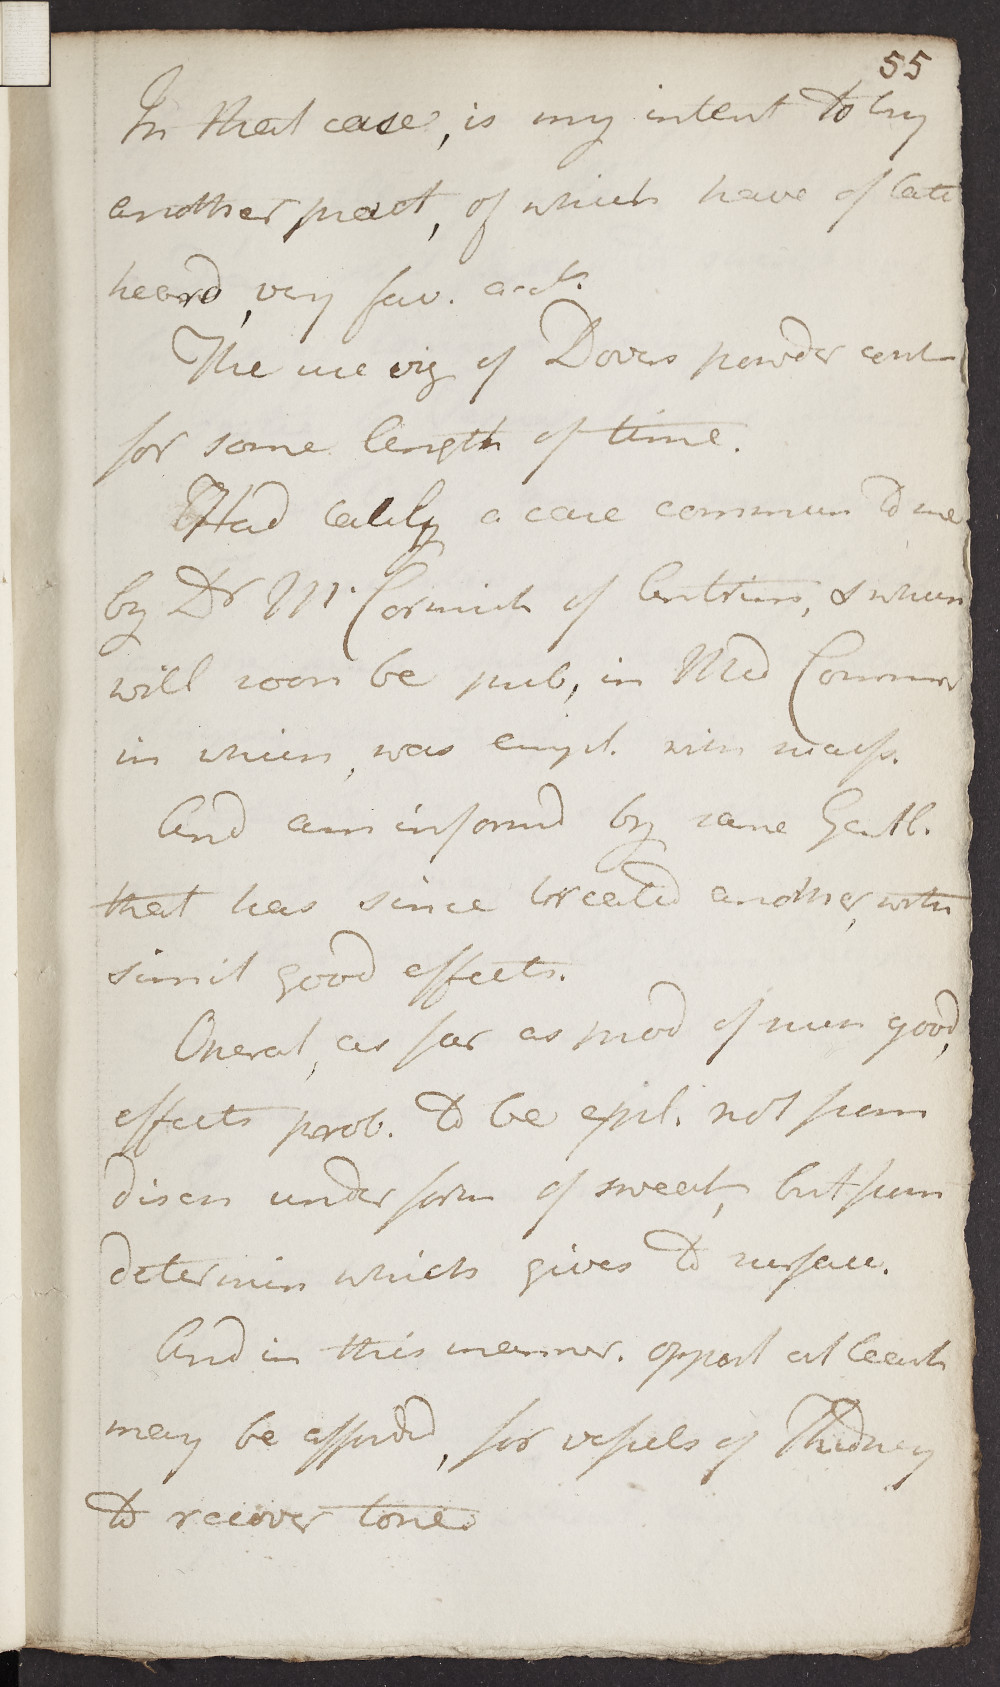 55
In that case, is my intent to try
another pract, of which have of late
heard, very fav. accts.
The use viz of Dovers powder cont
for some length of time.
Had lately a case commun to me
by Dr Mc Cormick of Antrim, & which
will soon be pub, in Med Comm
in which, was empl. with success.
And am informd by same Gentl.
that has since treated another, with
simil good effects.
Operat, as far as mod of
good,
effects prob. to be expl. not from
disch under form of sweat, but from
determin which gives to surface.
And in this manner. opport at least
may be affordd, for vessels of Kidney
to recover tone.